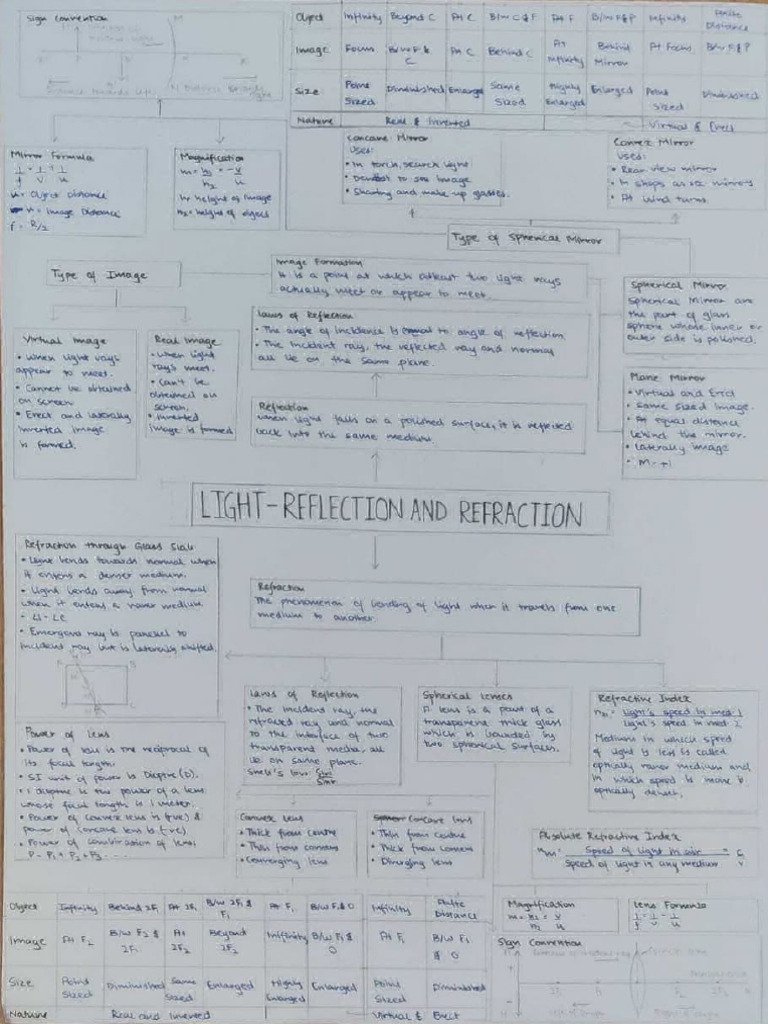 Sign Convention
M
Object Infinity Beyond C At C B/w C & F At F B/w F & P Infinity Finite Distance
Image Focus B/w F & C At C Behind C At Infinity Behind Mirror At Focus B/w F & P
Size Point Sized Diminished Enlarged Same Sized Highly Enlarged Enlarged Point Sized Diminished
Nature Real & Inverted Virtual & Erect
Mirror Formula
1/f = 1/v + 1/u
u = Object Distance
v = Image Distance
f = R/2
Magnification
m = h1/h2 = -v/u
h1 = height of image
h2 = height of object
Concave Mirror
Uses:
• In torch, search light
• Dentist to see image
• Shaving and make up glasses.
Convex Mirror
Uses:
• Rear view mirror
• In shops as
• At blind turns.
Type of Spherical Mirror
Type of Image
Image Formation
It is a point at which atleast two light rays
actually meet or appear to meet.
Spherical Mirror
Spherical Mirror are
the part of glass
sphere whose inner or
outer side is polished.
Laws of Reflection
• The angle of incidence is equal to angle of reflection.
• The incident ray, the reflected ray and normal
all lie on the same plane.
Virtual Image
• When light rays
appear to meet.
• Cannot be obtained
on screen
• Erect and laterally
inverted image
is formed.
Real Image
• When light
rays meet.
• Can't be
obtained on
screen.
• Inverted
image is formed
Plane Mirror
• Virtual and Erect
• Same sized image.
• At equal distance
behind the mirror.
• Laterally image
• M = +1
Reflection
When light falls on a polished surface, it is reflected
back into the same medium.
LIGHT-REFLECTION AND REFRACTION
Refraction through Glass Slab
• Light bends towards normal when
it enters a denser medium.
• Light bends away from normal
when it enters a rarer medium.
• ∠i = ∠e
• Emergent ray is parallel to
incident ray but is laterally shifted.
A B
C
Refraction
The phenomenon of bending of light when it travels from one
medium to another.
Laws of Reflection
• The incident ray, the
refraced ray and normal
to the interface of two
transparent media, all
lie on same plane.
Snell's law: Sini/Sinr
Spherical Lenses
A lens is a part of a
transparent thick glass
which is bounded by
two spherical surfaces.
Refractive Index
light's speed in med. 1
light's speed in med. 2
Medium in which speed
of light is less is called
optically rarer medium and
in which speed is more is
optically denser.
Power of Lens
• Power of lens is the reciprocal of
its focal length.
• SI unit of power is Dioptre (D).
• 1 dioptre is the power of a lens
whose focal length is 1 meter.
• Power of convex lens is (+ve) &
power of concave lens is (-ve)
• Power of combination of lens:
P = P1 + P2 + P3 ....
Convex Lens
• Thick from centre
• Thin from corners
• Converging lens
Concave lens
• Thin from centre
• Thick from corners
• Diverging lens
Absolute Refractive Index
nm = Speed of light in air / Speed of light in any medium = c/v
Object Infinity Behind 2F1 At 2F1 B/w 2F1 & F1 At F1 B/w F1 & O Infinity Finite Distance
Image At F2 B/w F2 & 2F2 At 2F2 Beyond 2F2 Infinity B/w F1 & O At F1 B/w F1 & O
Size Point Sized Diminished Same Sized Enlarged Highly Enlarged Enlarged Point Sized Diminished
Nature Real and Inverted Virtual & Erect
Magnification
m = h1/h2 = v/u
Lens Formula
1/f = 1/v - 1/u
Sign Convention